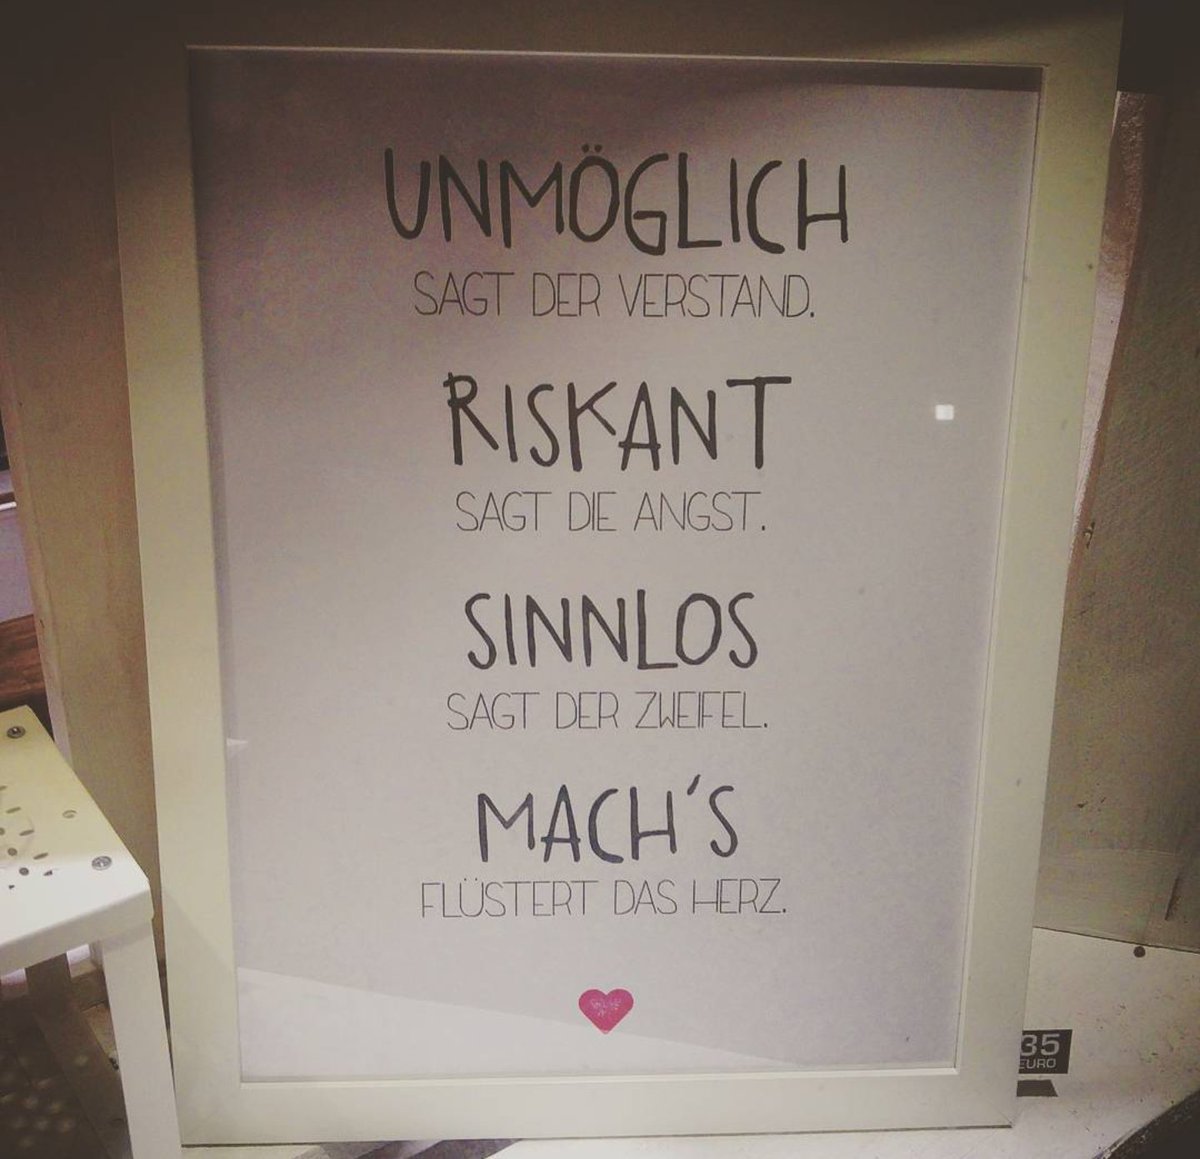 UNMÖGLICH
SAGT DER VERSTAND.
RISKANT
SAGT DIE ANGST.
SINNLOS
SAGT DER ZWEIFEL.
MACH'S
FLÜSTERT DAS HERZ.
35
EURO